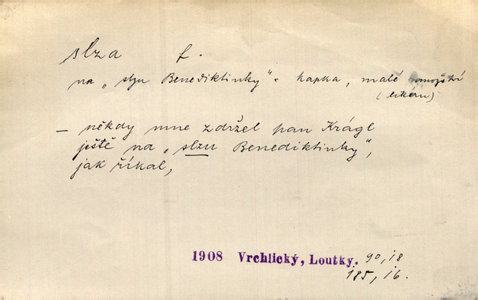 slza f.
na „slzu Benediktinky“ = kapka, malé množství
(likéru)
— někdy mne zdržel pan Krágl
ještě na „slzu Benediktinky“,
jak říkal,
1908 Vrchlický, Loutky. 90,18
185,16.